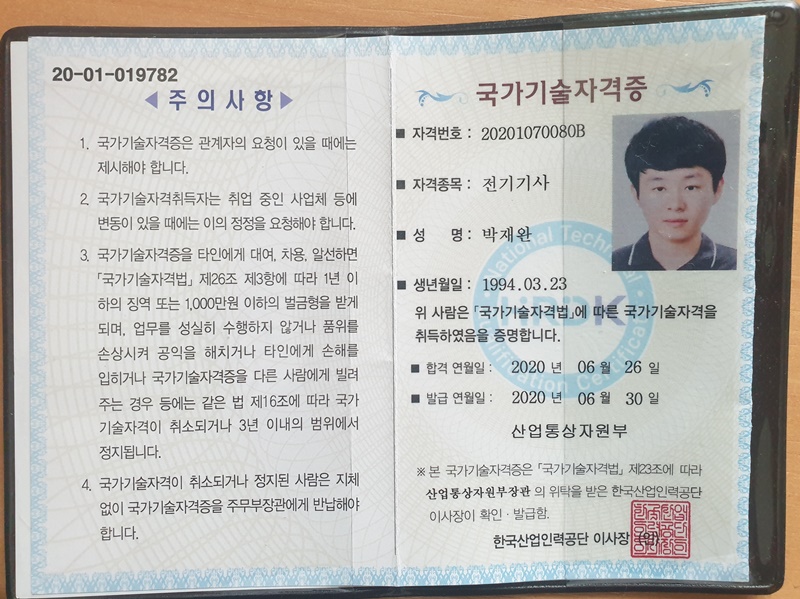 20-01-019782
◀ 주 의 사 항 ▶
1. 국가기술자격증은 관계자의 요청이 있을 때에는
제시해야 합니다.
2. 국가기술자격취득자는 취업 중인 사업체 등에
변동이 있을 때에는 이의 정정을 요청해야 합니다.
3. 국가기술자격증을 타인에게 대여, 차용, 알선하면
「국가기술자격법」 제26조 제3항에 따라 1년 이
하의 징역 또는 1,000만원 이하의 벌금형을 받게
되며, 업무를 성실히 수행하지 않거나 품위를
손상시켜 공익을 해치거나 타인에게 손해를
입히거나 국가기술자격증을 다른 사람에게 빌려
주는 경우 등에는 같은 법 제16조에 따라 국가
기술자격이 취소되거나 3년 이내의 범위에서
정지됩니다.
4. 국가기술자격이 취소되거나 정지된 사람은 지체
없이 국가기술자격증을 주무부장관에게 반납해야
합니다.
국가기술자격증
■ 자격번호 : 20201070080B
■ 자격종목 : 전기기사
■ 성 명 : 박재완
■ 생년월일 : 1994.03.23
위 사람은 「국가기술자격법」에 따른 국가기술자격을
취득하였음을 증명합니다.
■ 합격 연월일 : 2020 년 06 월 26 일
■ 발급 연월일 : 2020 년 06 월 30 일
산업통상자원부
※ 본 국가기술자격증은 「국가기술자격법」 제23조에 따라
산업통상자원부장관 의 위탁을 받은 한국산업인력공단
이사장이 확인 · 발급함.
한국산업인력공단 이사장 (인)
National Technical
HRDK
Qualification Certificate